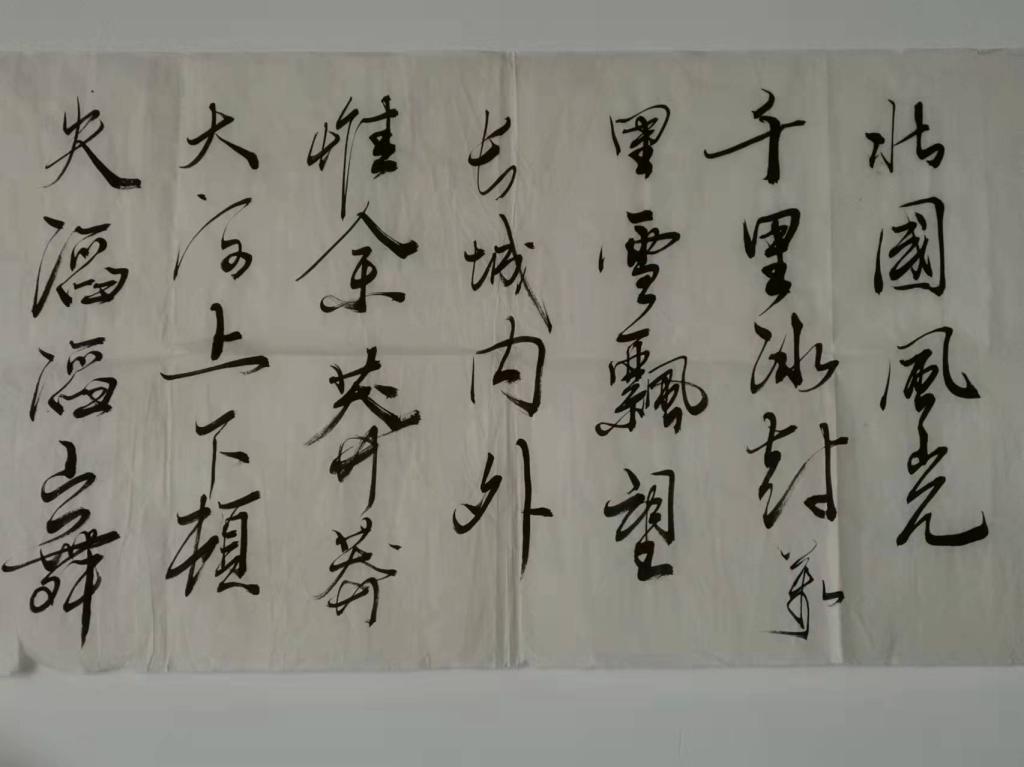 北國風光
千里冰封萬
里雪飄望
长城内外
惟余莽莽
大河上下頓
失滔滔山舞